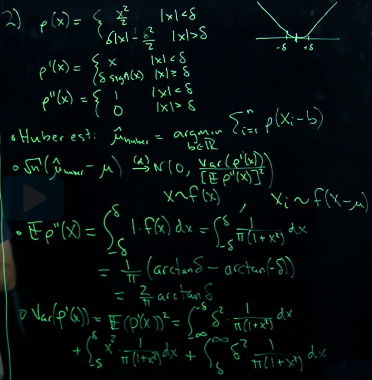 2) ρ(x) = { x²/2 |x|<δ
δ|x| - δ²/2 |x|>δ
-δ +δ
ρ'(x) = { x |x|<δ
δ sign(x) |x|≥δ
ρ''(x) = { 1 |x|<δ
0 |x|>δ
• Huber est: μ̂_Huber = argmin_{b∈ℝ} Σ_{i=1}^n ρ(X_i-b)
• √n(μ̂_Huber - μ) →(d) N(0, Var(ρ'(X))/[𝔼ρ''(X)]²)
X~f(x), X_i ~ f(x-μ)
• 𝔼ρ''(X) = ∫_{-δ}^{δ} 1·f(x) dx = ∫_{-δ}^{δ} 1/π(1+x²) dx
= 1/π (arctanδ - arctan(-δ))
= 2/π arctanδ
• Var(ρ'(X)) = 𝔼(ρ'(X))² = ∫_{-∞}^{-δ} δ² · 1/π(1+x²) dx
+ ∫_{-δ}^{δ} x² 1/π(1+x²) dx + ∫_{δ}^{∞} δ² 1/π(1+x²) dx